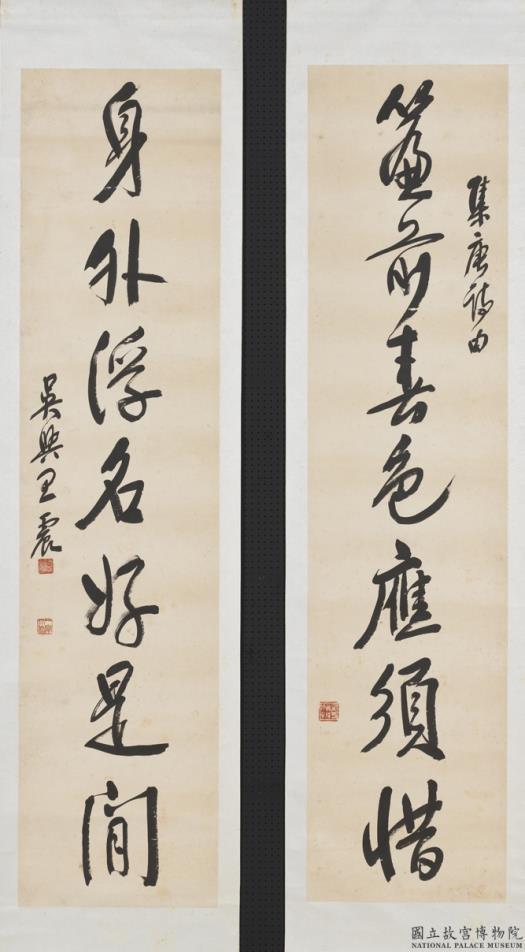 集唐詩句
簾前春色應須惜
身外浮名好是閒
吳興王震
國立故宮博物院
NATIONAL PALACE MUSEUM